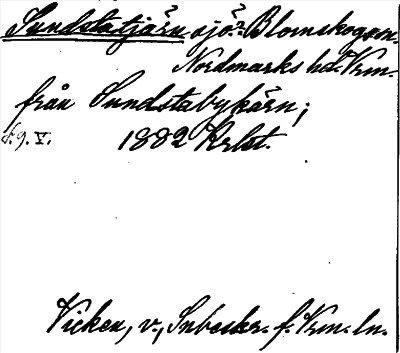 Sundstatjärn sjö? Blomskogsn.
Nordmarks hd. Vrm.
från Sundstabykärn;
d. 9. V. 1882 Krlst.
Vicken, v., Inbeskr. f. Vrm. ln.